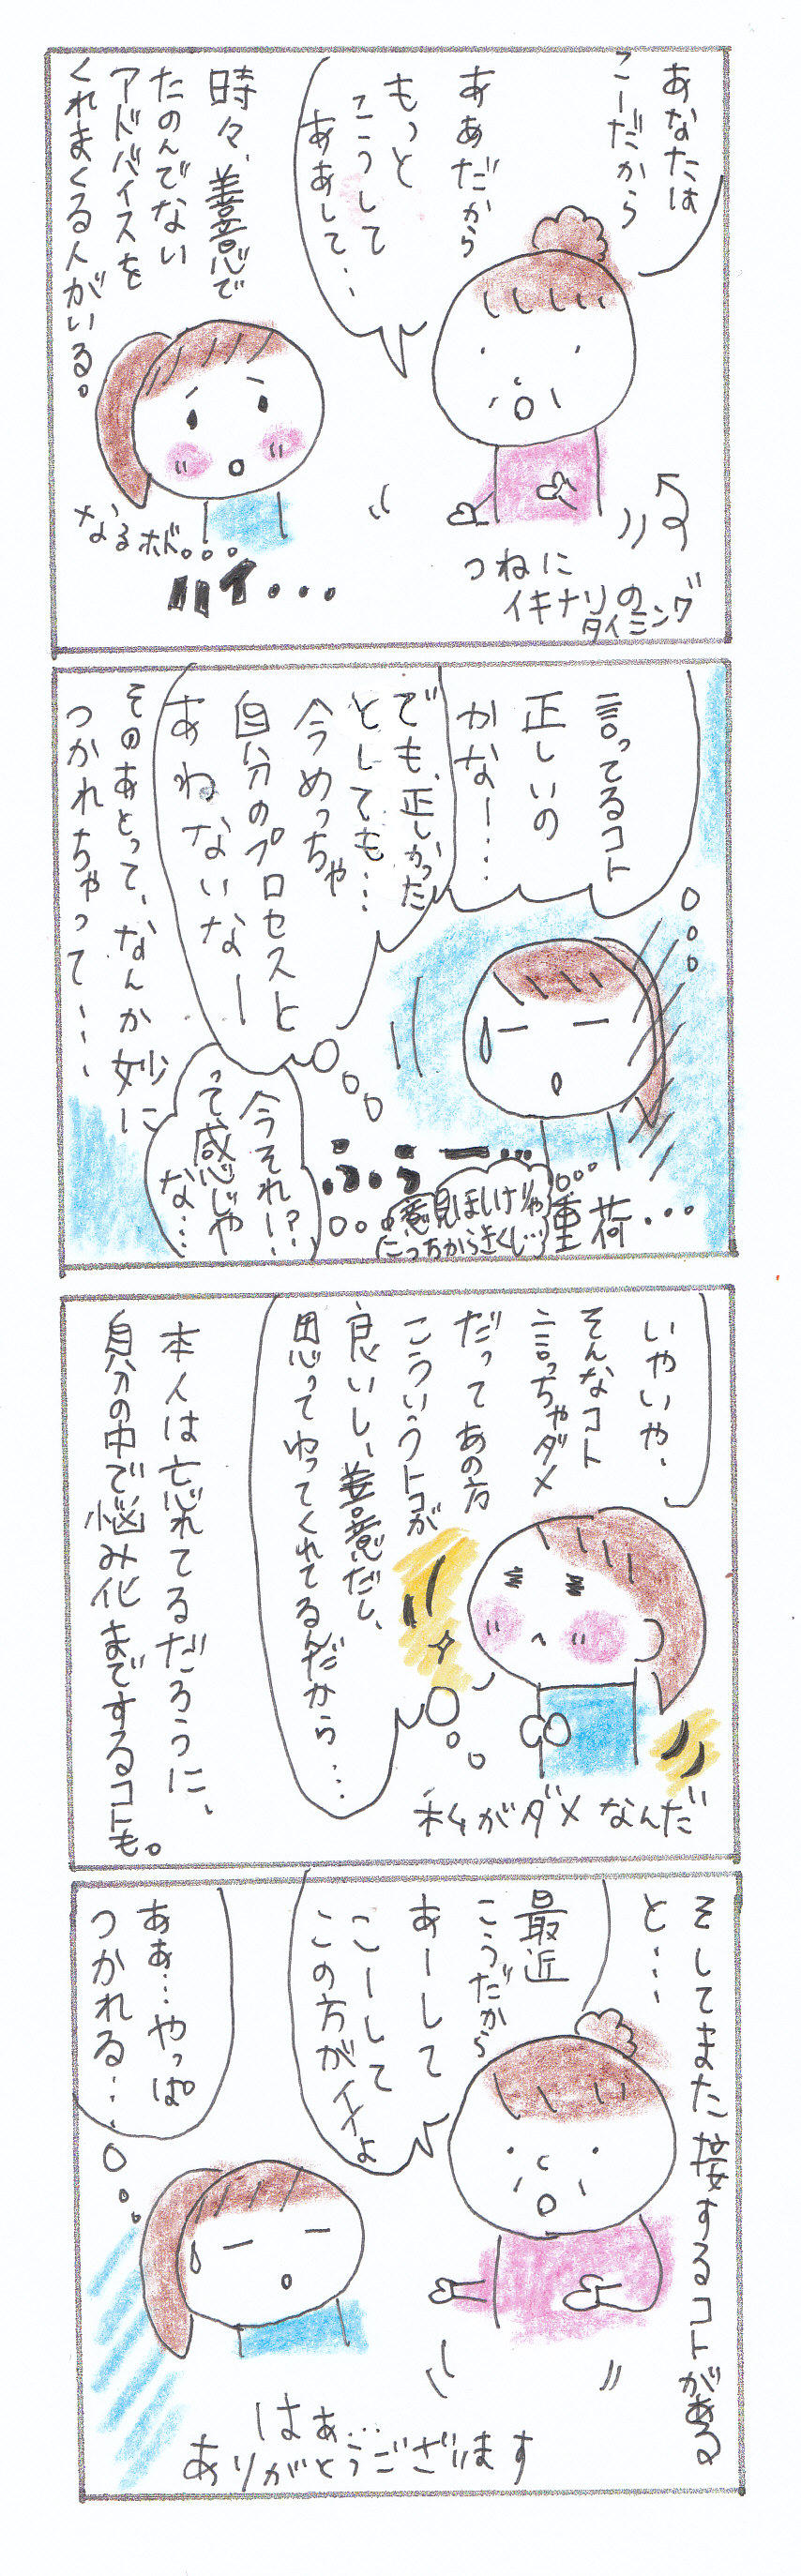 あなたは
こーだから
ああだから
もっと
こうして
ああして・・
時々、善意で
たのんでない
アドバイスを
くれまくる人がいる。
なるホド。。。
ハイ・・・
つねに
イキナリの
タイミング
言ってるコト
正しいの
かなー・・・
でも、正しかった
としても・・・
今めっちゃ
自分のプロセスと
あわないなー
そのあとって、なんか妙に
つかれちゃって・・・
今それー!?
って感じや
な・・・
ふぅー・・・
意見ほしけりゃ
こっちからきくし・・・
重荷・・・
いやいや、
そんなコト
言っちゃダメ
だってあの方
こういうトコが
良いし、善意だし、
思ってやってくれてるんだから・・・
私がダメなんだ
本人は忘れてるだろうに、
自分の中で悩み化までするコトも。
そしてまた接するコトがある
と・・・
最近
こうだから
あーして
こーして
この方がイイよ
あぁ・・・やっぱ
つかれる・・・
はぁ・・・
ありがとうございます